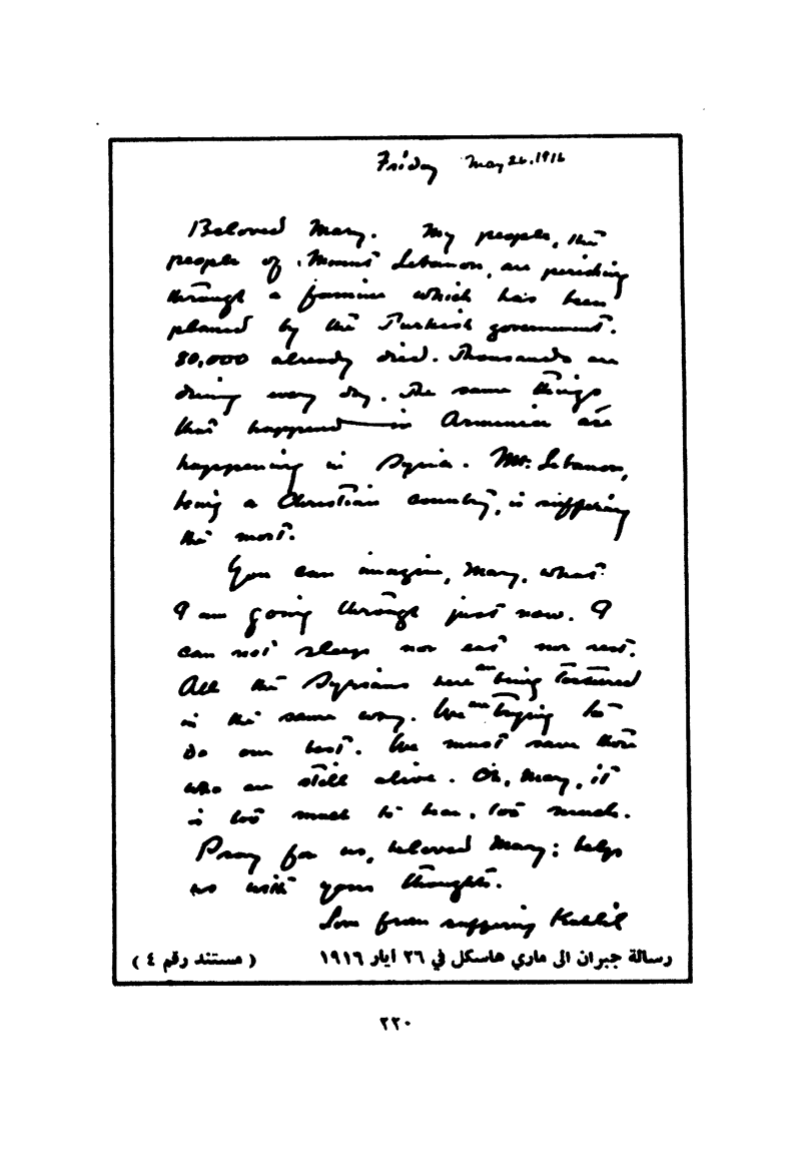 Friday May 26, 1916
Beloved Mary. My people, the
people of Mount Lebanon, are perishing
through a famine which has been
planed by the Turkish government.
80,000 already died. Thousands are
dying every day. The same things
that happened in Armenia are
happening in Syria. Mt. Lebanon,
being a Christian country, is suffering
the most.
You can imagine, Mary, what
I am going through just now. I
can not sleep nor eat nor rest.
All the Syrians here are being tortured
in the same way. We are trying to
do our best. We must save those
who are still alive. Oh, Mary, it
is too much to bear, too much.
Pray for us, beloved Mary: help
us with your thoughts.
Love from suffering Kahlil
رسالة جبران الى ماري هاسكل في ٢٦ ايار ١٩١٦ (مستند رقم ٤)
٢٢٠